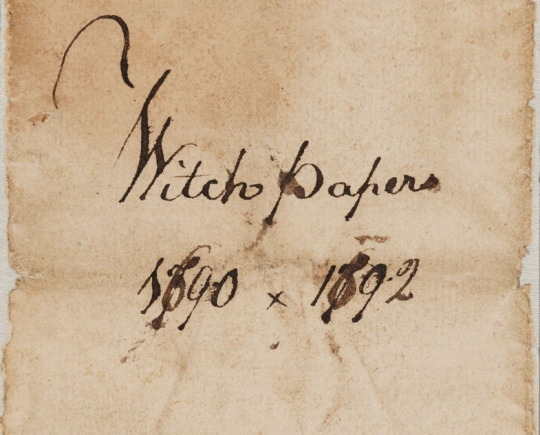 Witch papers
1690 x 1692